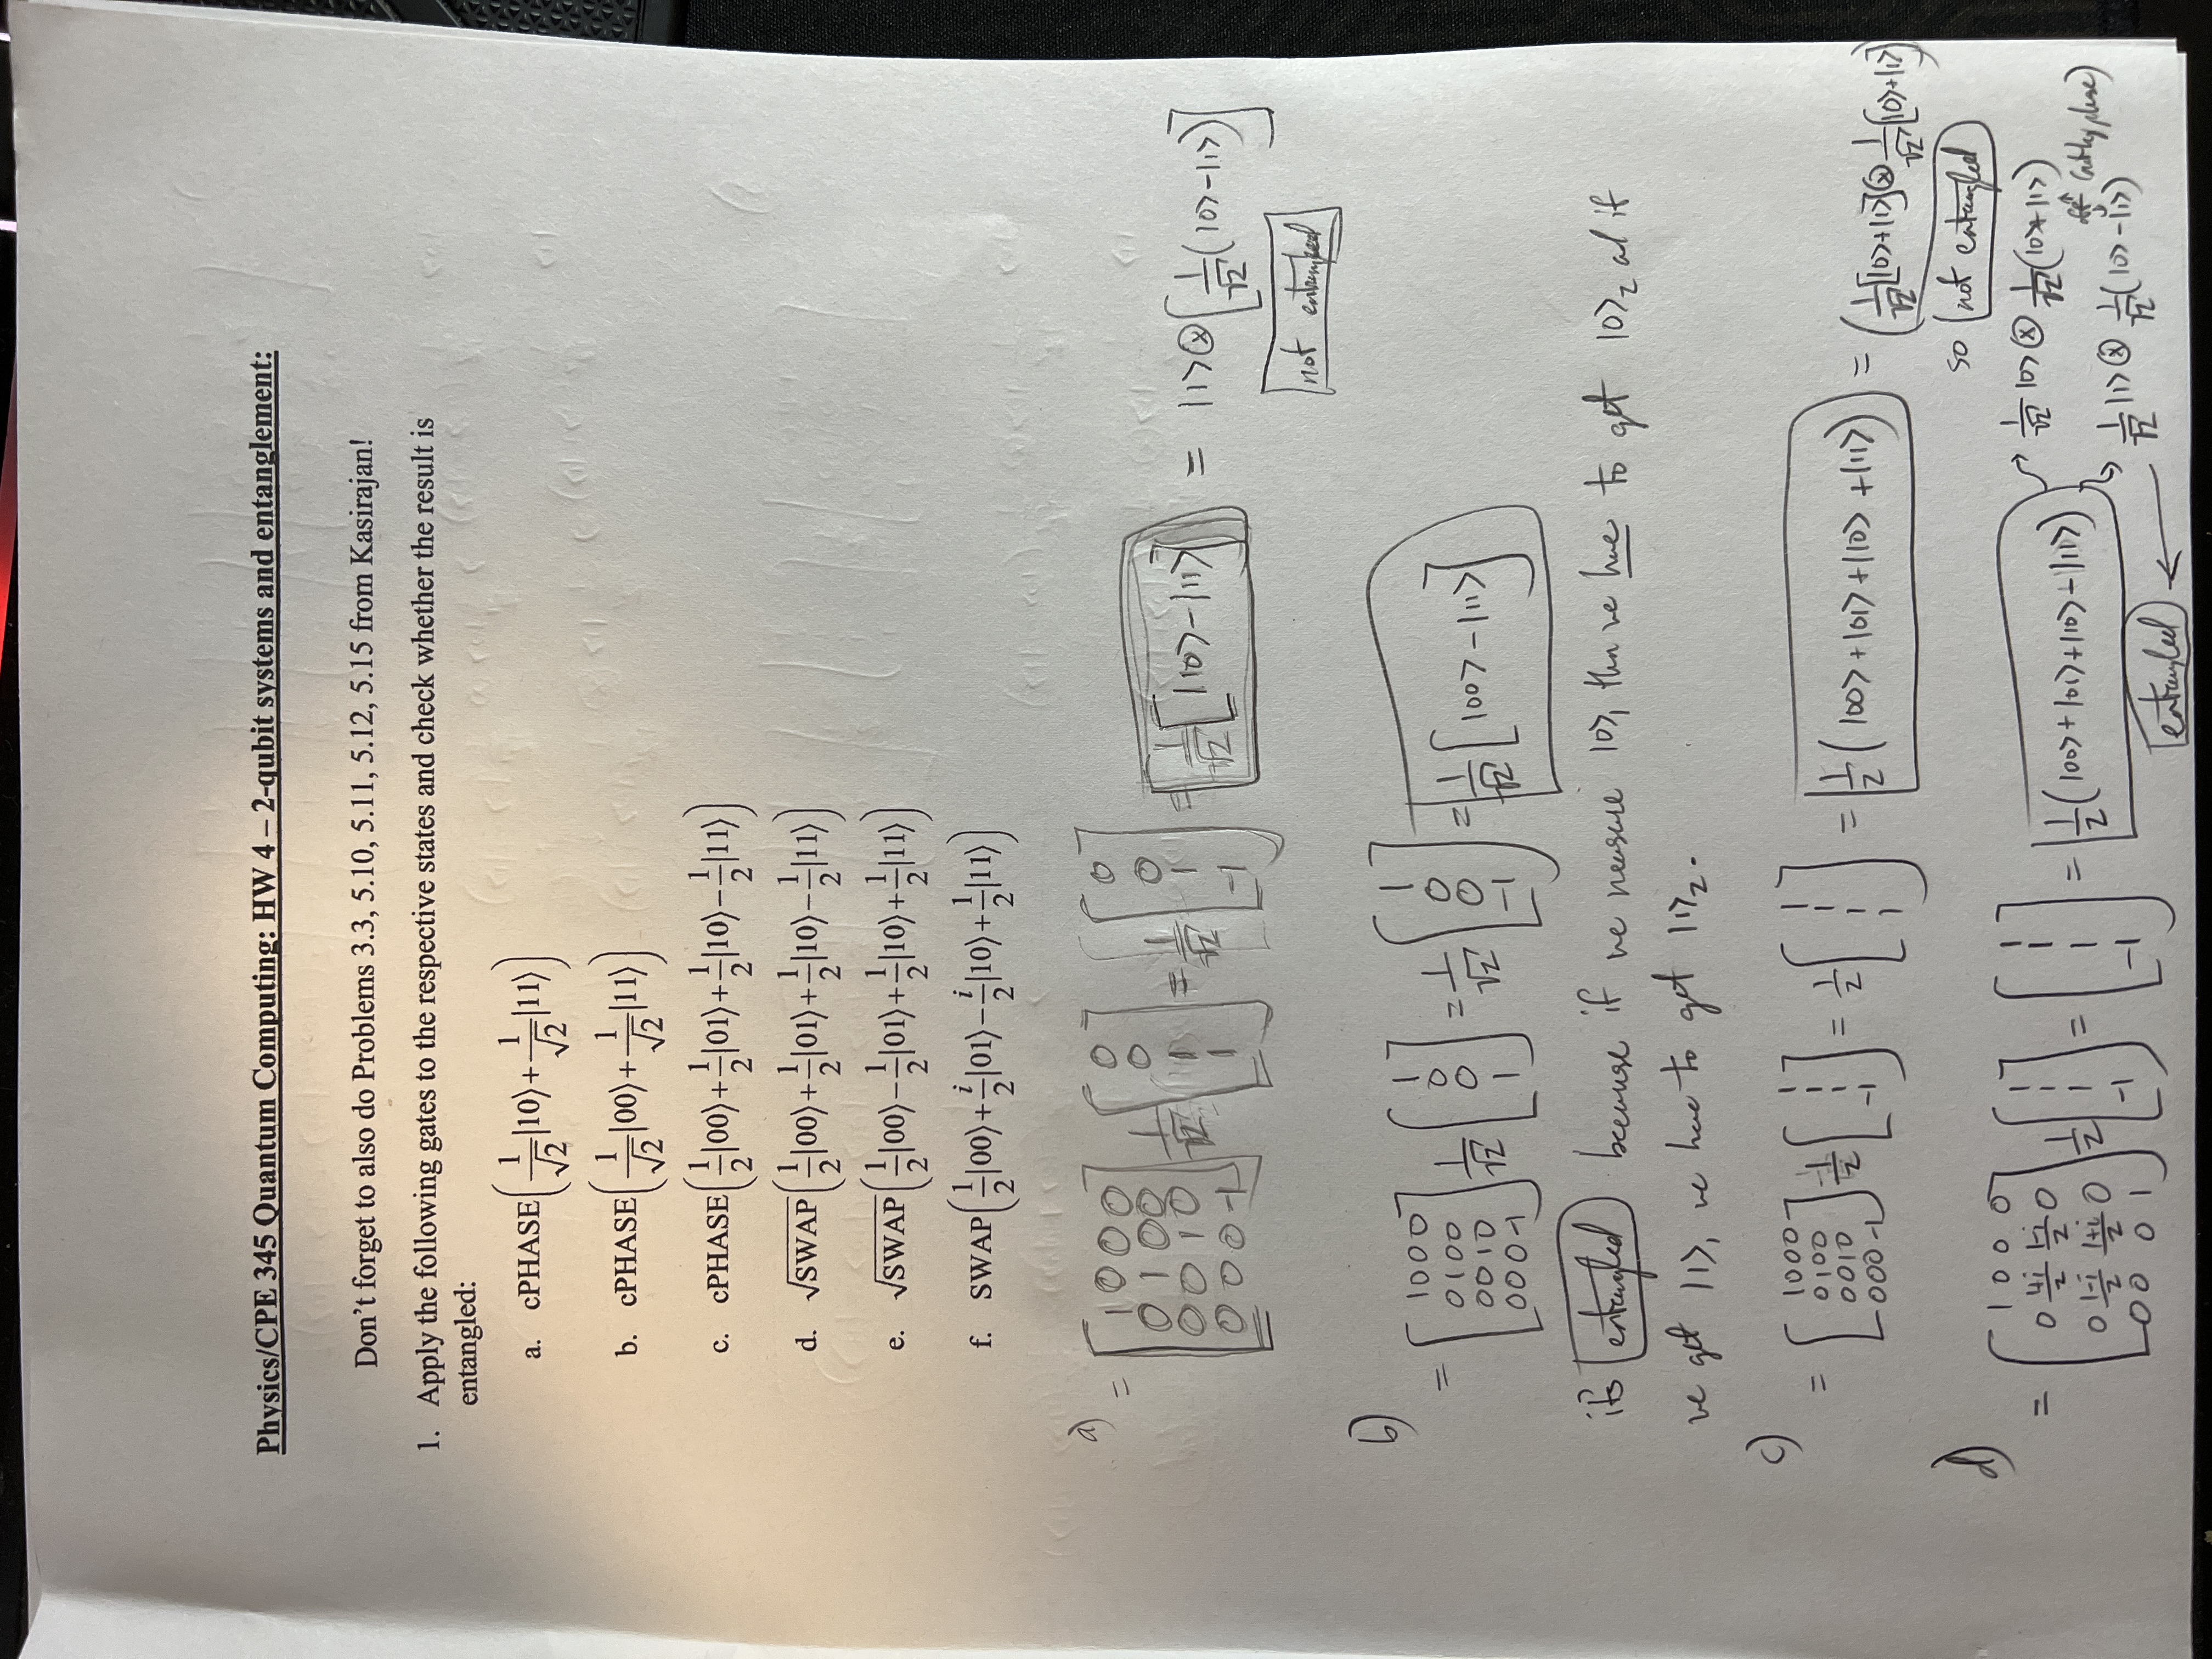 Physics/CPE 345 Quantum Computing: HW 4 – 2-qubit systems and entanglement:
Don't forget to also do Problems 3.3, 5.10, 5.11, 5.12, 5.15 from Kasirajan!
1. Apply the following gates to the respective states and check whether the result is
entangled:
a. cPHASE(1/√2|10⟩+1/√2|11⟩)
b. cPHASE(1/√2|00⟩+1/√2|11⟩)
c. cPHASE(1/2|00⟩+1/2|01⟩+1/2|10⟩−1/2|11⟩)
d. √SWAP(1/2|00⟩+1/2|01⟩+1/2|10⟩−1/2|11⟩)
e. √SWAP(1/2|00⟩−1/2|01⟩+1/2|10⟩+1/2|11⟩)
f. SWAP(1/2|00⟩+i/2|01⟩−i/2|10⟩+1/2|11⟩)
a) = [1 0 0 0; 0 1 0 0; 0 0 1 0; 0 0 0 -1] 1/√2 [0; 0; 1; 1] = 1/√2 [0; 0; 1; -1] = 1/√2 [|10⟩-|11⟩] = |1⟩⊗[1/√2(|0⟩-|1⟩)]
not entangled
b) = [1 0 0 0; 0 1 0 0; 0 0 1 0; 0 0 0 -1] 1/√2 [1; 0; 0; 1] = 1/√2 [1; 0; 0; -1] = 1/√2 [|00⟩-|11⟩]
its entangled because if we measure |0⟩₁ then we have to get |0⟩₂ and if
we get |1⟩₁ we have to get |1⟩₂.
c) = [1 0 0 0; 0 1 0 0; 0 0 1 0; 0 0 0 -1] 1/2 [1; 1; 1; -1] = 1/2 [1; 1; 1; 1] = 1/2 (|00⟩+|01⟩+|10⟩+|11⟩) = (1/√2[|0⟩+|1⟩]⊗1/√2[|0⟩+|1⟩])
so not entangled
d) = [1 0 0 0; 0 1+i/2 1-i/2 0; 0 1-i/2 1+i/2 0; 0 0 0 1] 1/2 [1; 1; 1; -1] = [1; 1; 1; -1] = 1/2 (|00⟩+|01⟩+|10⟩-|11⟩)
1/√2 |0⟩ ⊗ 1/√2 (|0⟩+|1⟩)
1/√2 |1⟩ ⊗ 1/√2 (|0⟩-|1⟩)
entangled